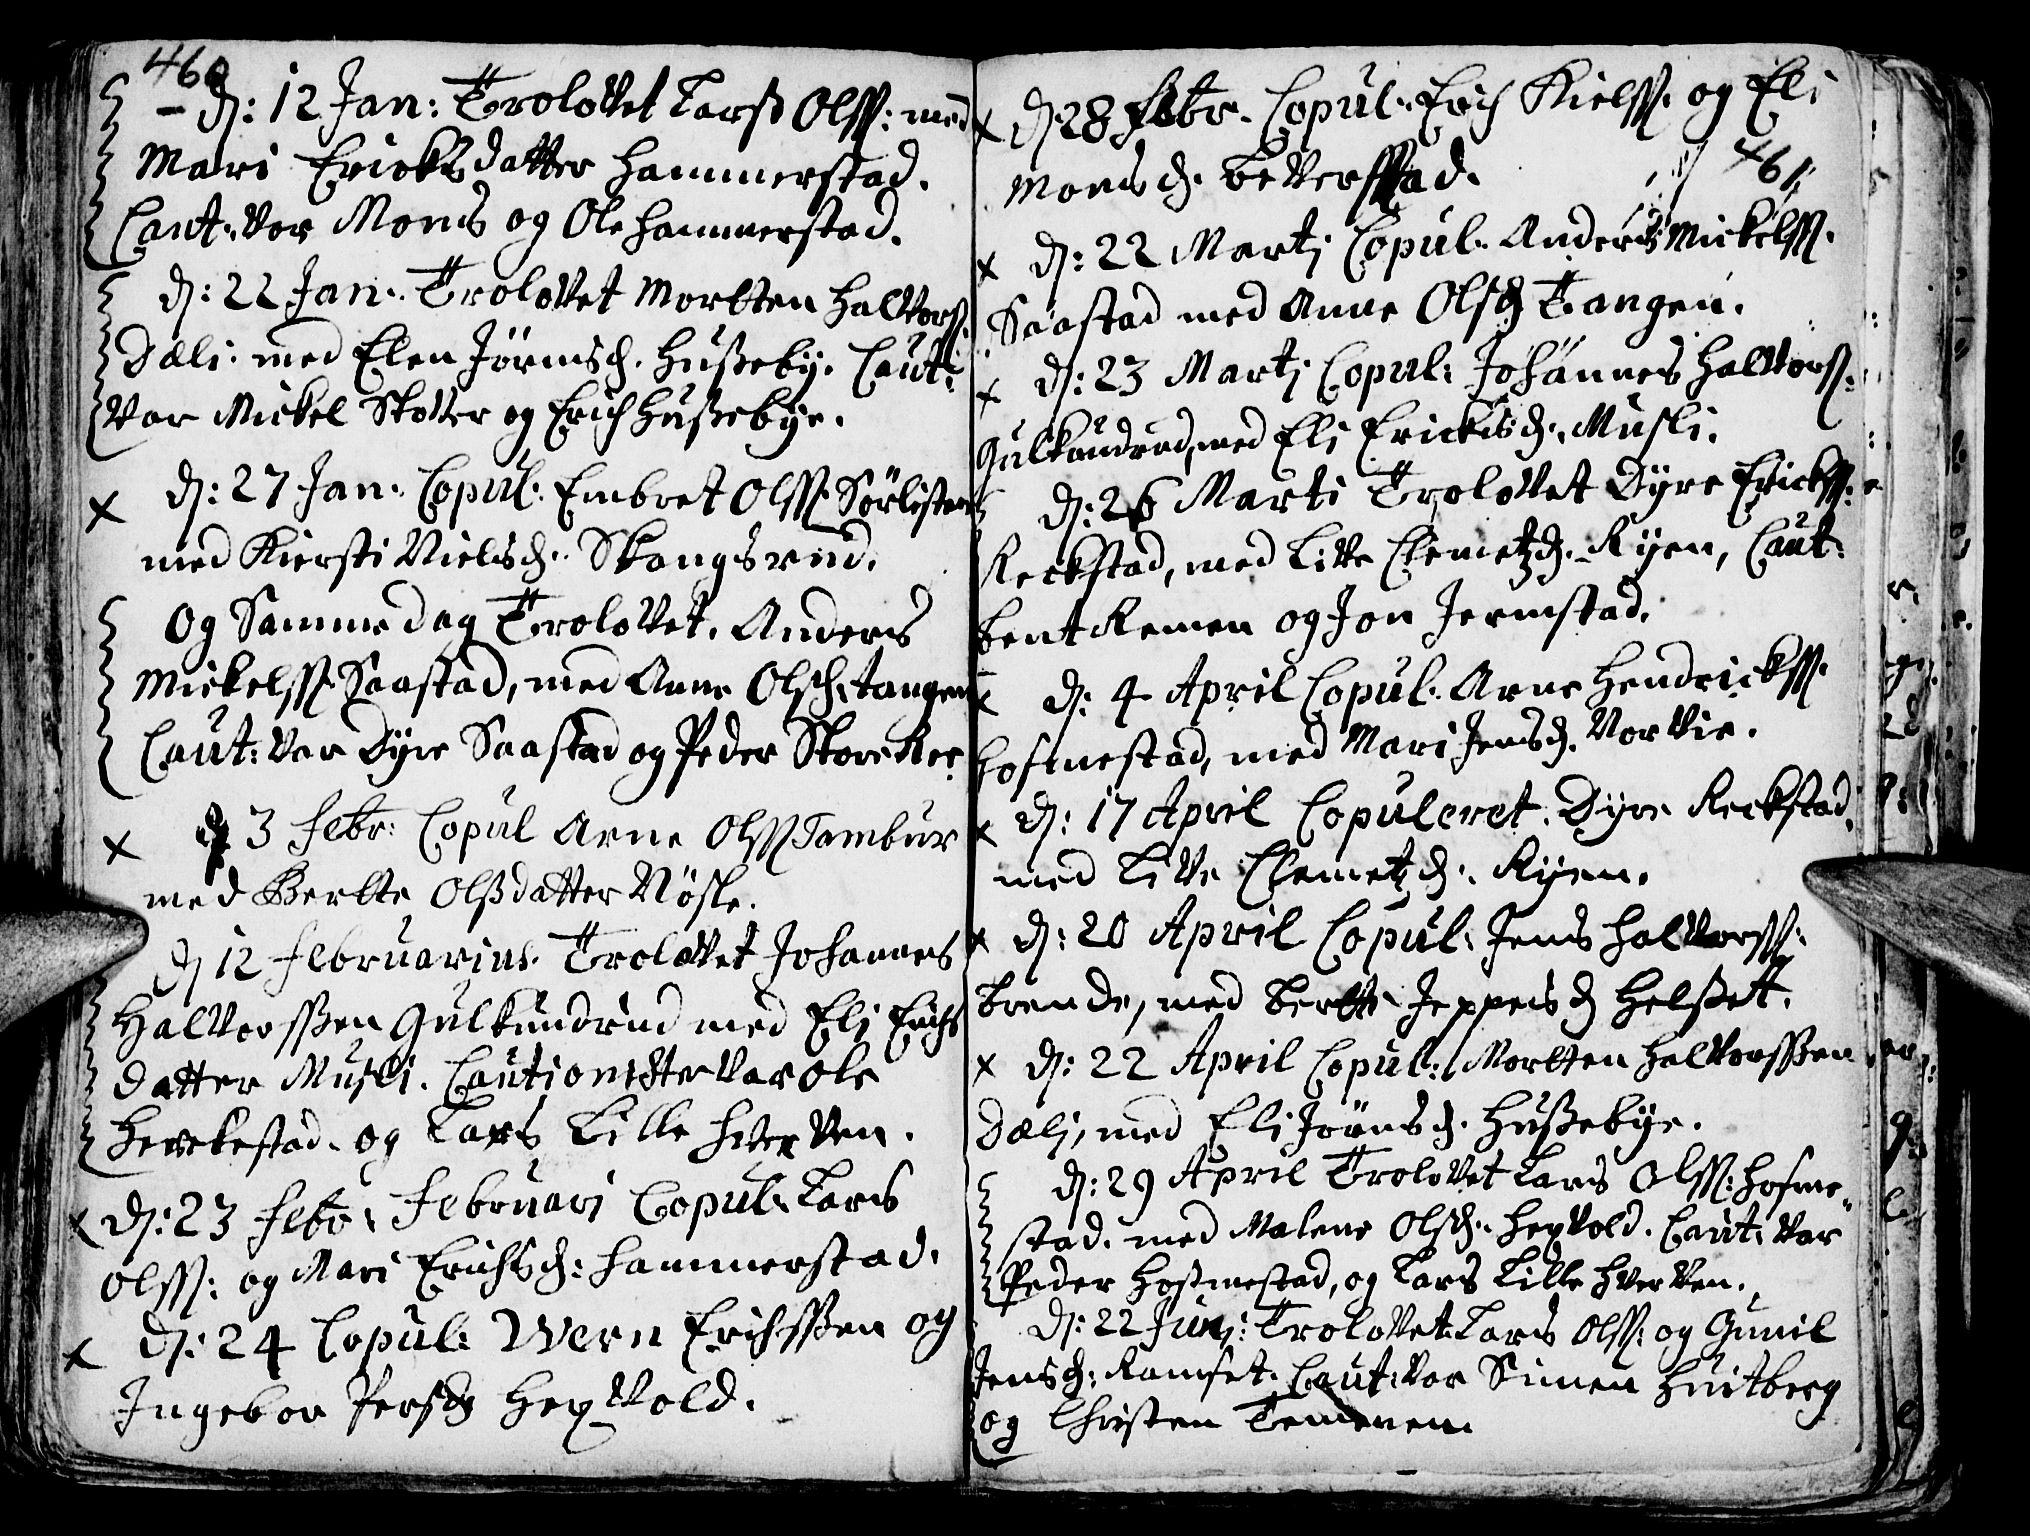 460
- D: 12 Jan: Trolovet Larß Olss: med
Mari Ericksdatter Hammerstad.
Caut: var Mons og Ole Hammerstad.
D: 22 Jan: Trolovet Mortten Halvors:
Dæli. med Elen Jörnsd. Hußeby. Caut:
var Mickel Skotter og Erich Hußebye.
x D: 27 Jan. Copul: Embret Olss. Sörlisteen
med Kiersti Nielsd. Skangsrud.
Og Samme dag Trolovet. Anders
Mickelss. Saastad, med Anne Olsd. Tangen
Caut: var Dyre Saastad og Peder Store Ree
x 3 Febr: Copul Arne Olss Tambur
med Bertte Olßdatter Nösle.
D 12 Februarius. Trolovet Johannes
Halvorsßen Gulkundrud med Eli Erichs
datter Musli. Cautionister var Ole
Herckestad. og Lars Lille Hverven.
x D: 23 Febr: Februari Copul. Lars
Olss: og Mari Erichsd: Hammerstad.
x D: 24 Copul: Wern Erichsßen og
Ingebor Persd Hexvold.
x D. 28 Febr. Copul. Erich Kielss. og Eli
Monsd. Beverstad.
461
x D: 22 Martj Copul. Anders Mickelss.
Saastad med Anne Olsd Tangen.
x D: 23 Martj Copul: Johannes Halvorss:
Gulkundrud, med Eli Ericksd. Musli.
D: 26 Marti Trolovet Dyre Erickss:
Reckstad, med Live Clemetzd. Ryen, Caut:
bent Remen og Jon Jermstad.
x D: 4 April Copul. Arne Hendrickss.
Hosmestad, med Mari Jensd. Vorvie.
x D: 17 April Copuleret. Dyre Reckstad.
med Live Clemetzd. Ryen.
x D: 20 April Copul: Jens Halvorss:
Brende, med Bertte Jeppesd Helßet.
x D: 22 April Copul: Mortten Halvorsßen
Dælj, med Eli Jörnsd. Hußebye.
D: 29 April Trolovet Lars Olss: Hosme-
stad. med Malene Olsd. Hexvold. Caut: var
Peder Hosmestad, og Lars Lille Hverven.
D: 22 Junj: Trolovet Lars Olss: og Gunil
Jensd: Ramset. Caut: var Simen Huitberg
og Christen